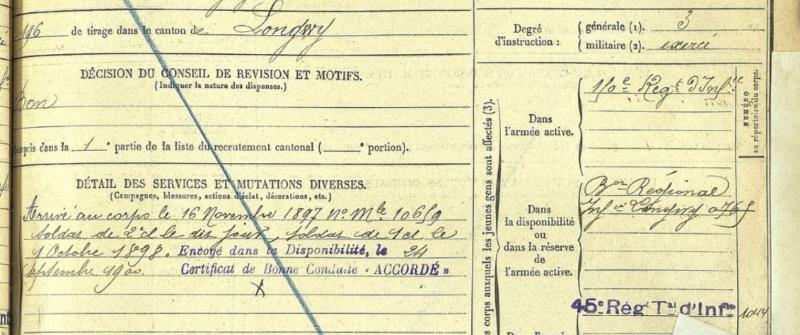 196 de tirage dans le canton de Longwy
DÉCISION DU CONSEIL DE REVISION ET MOTIFS.
(Indiquer la nature des dispenses.)
Bon
Compris dans la 1e partie de la liste du recrutement cantonal ( portion).
DÉTAIL DES SERVICES ET MUTATIONS DIVERSES.
(Campagnes, blessures, actions d'éclat, décorations, etc.)
Arrivé au corps le 16 Novembre 1897 No Mle 10659
Soldat de 2e cl le dit jour, Soldat de 1e cl le
1 Octobre 1898. Envoyé dans la Disponibilité, le 24
Septembre 1900 Certificat de Bonne Conduite « ACCORDÉ »
X
Degré
d'instruction :
générale (1). 3
militaire (2). exercé
corps auxquels les jeunes gens sont affectés (3).
Dans
l'armée active.
Régt d'Infie
NUMÉRO
au répertoire du corps.
Dans
la disponibilité
ou
dans la réserve
de
l'armée active.
Bon Régional
Infie Longwy 0765
45e Régt Tal d'Infie 1044